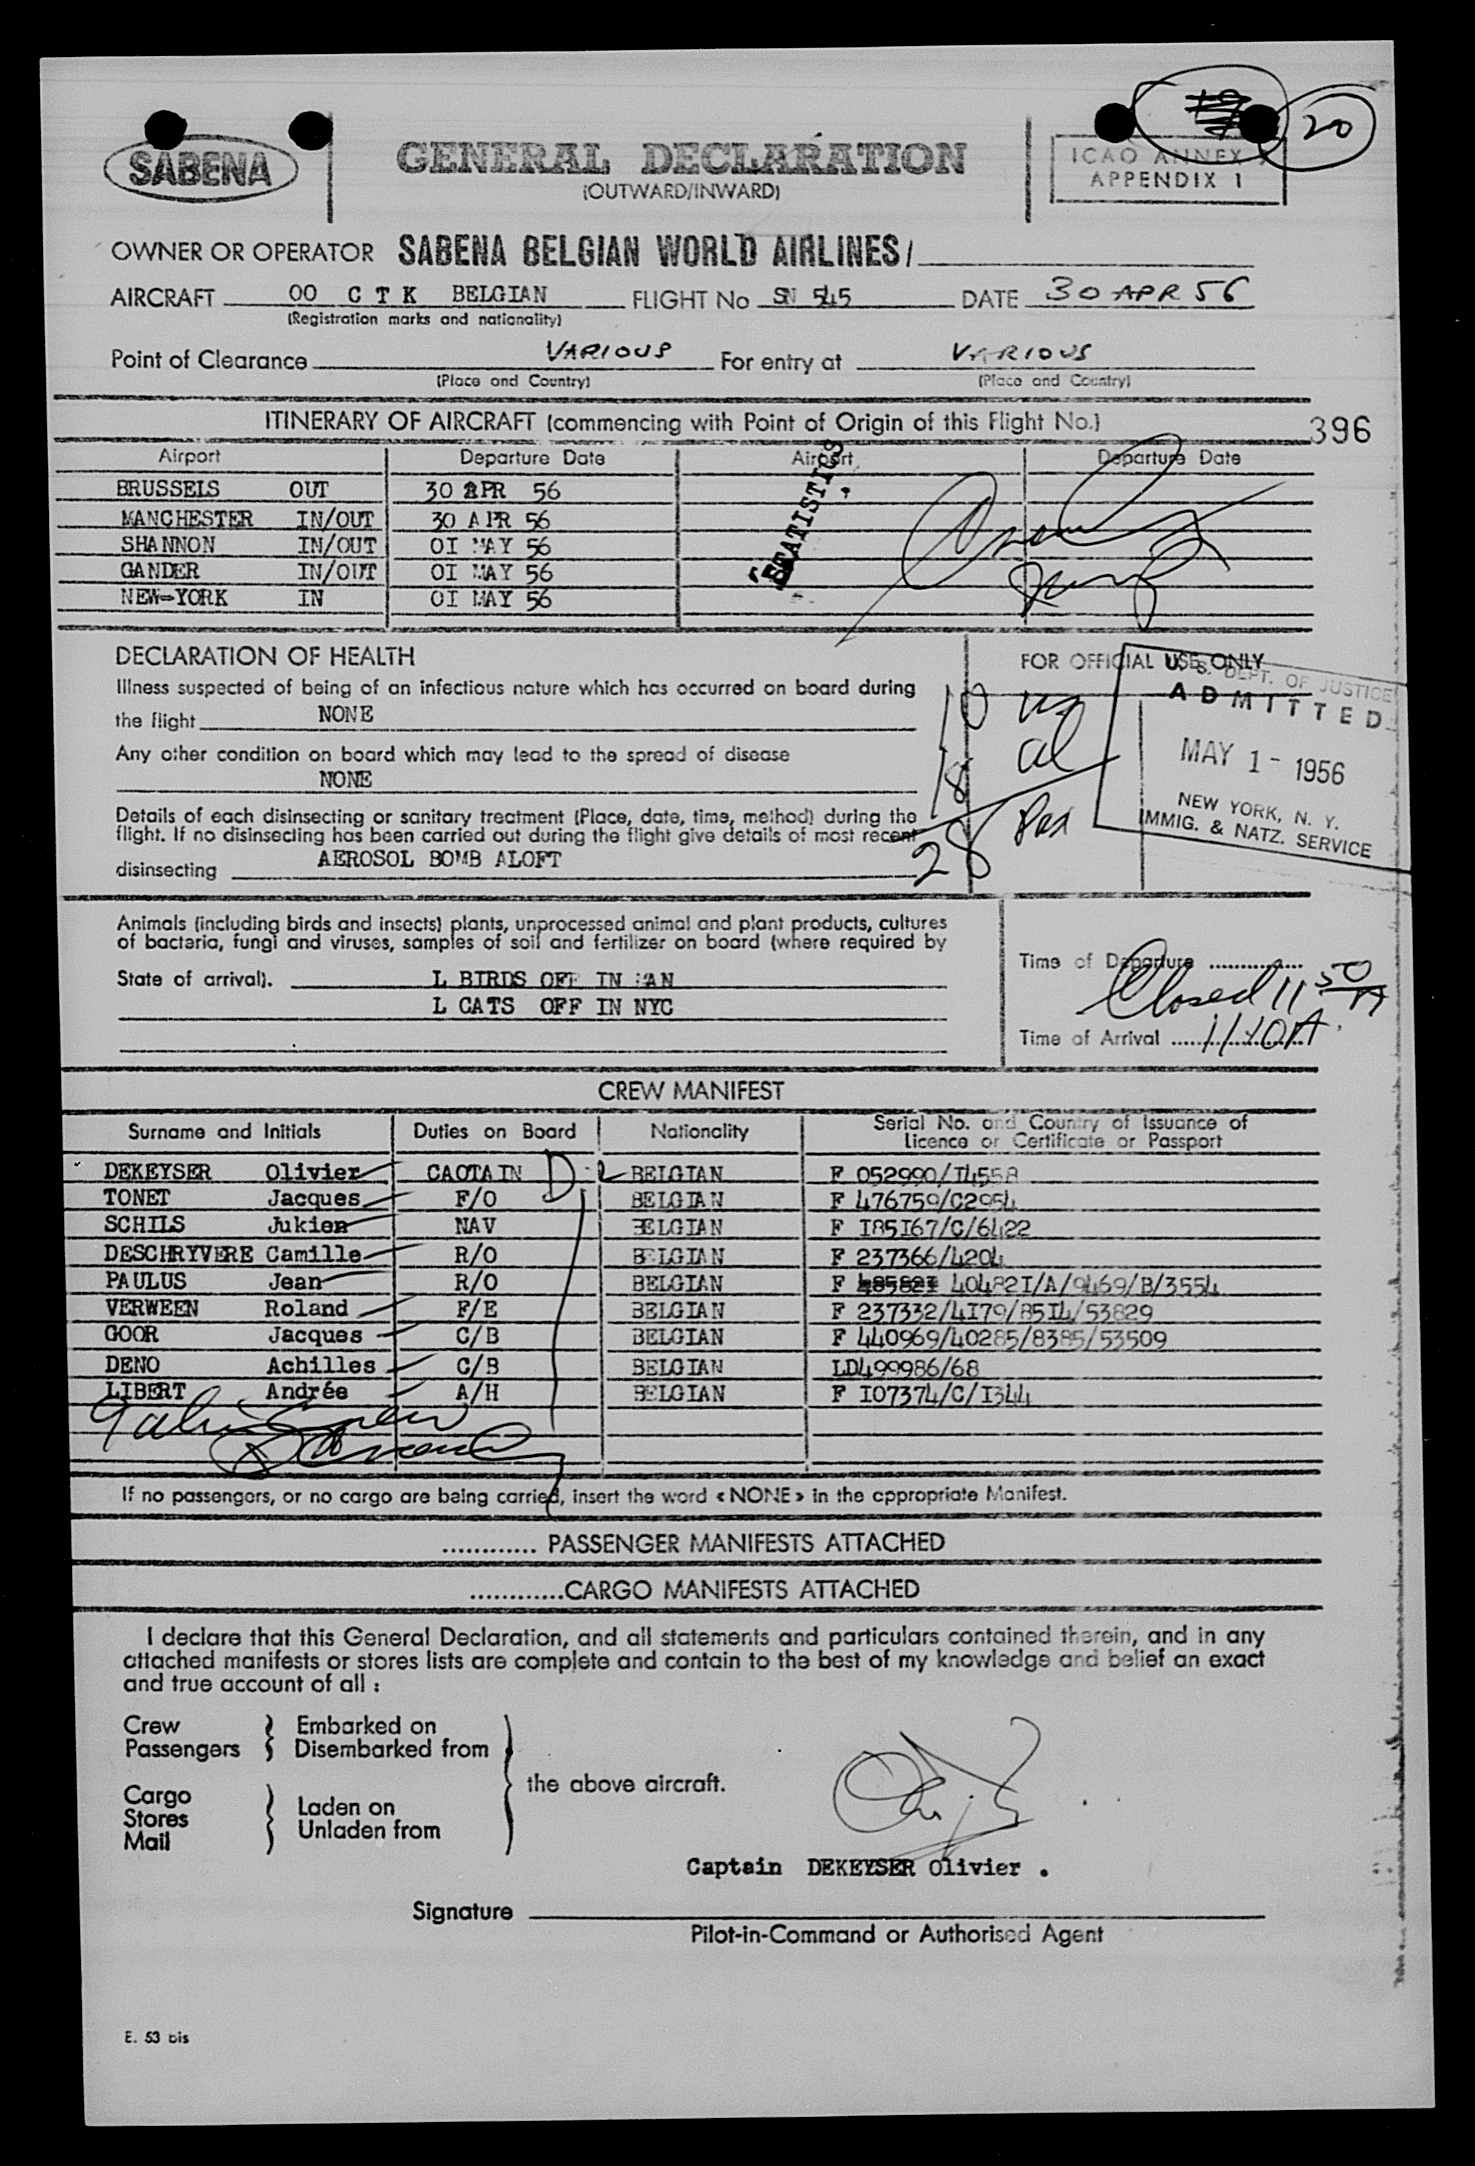 20
SABENA
GENERAL DECLARATION
(OUTWARD/INWARD)
ICAO ANNEX
APPENDIX 1
OWNER OR OPERATOR SABENA BELGIAN WORLD AIRLINES/
AIRCRAFT OO C T K BELGIAN FLIGHT No SN 545 DATE 30 APR 56
(Registration marks and nationality)
Point of Clearance VARIOUS For entry at VARIOUS
(Place and Country) (Place and Country)
ITINERARY OF AIRCRAFT (commencing with Point of Origin of this Flight No.)
396
Airport Departure Date Airport Departure Date
BRUSSELS OUT 30 APR 56
MANCHESTER IN/OUT 30 APR 56
SHANNON IN/OUT OI MAY 56
GANDER IN/OUT OI MAY 56
NEW-YORK IN OI MAY 56
STATISTICS
DECLARATION OF HEALTH
FOR OFFICIAL USE ONLY
Illness suspected of being of an infectious nature which has occurred on board during
the flight NONE
Any other condition on board which may lead to the spread of disease
NONE
Details of each disinsecting or sanitary treatment (Place, date, time, method) during the
flight. If no disinsecting has been carried out during the flight give details of most recent
disinsecting AEROSOL BOMB ALOFT
10 us
18 al
28 Pax
U. S. DEPT. OF JUSTICE
ADMITTED
MAY 1 - 1956
NEW YORK, N. Y.
IMMIG. & NATZ. SERVICE
Animals (including birds and insects) plants, unprocessed animal and plant products, cultures
of bacteria, fungi and viruses, samples of soil and fertilizer on board (where required by
State of arrival). L BIRDS OFF IN MAN
L CATS OFF IN NYC
Time of Departure ..............
Closed 11 50 A
Time of Arrival ..... 1140A
CREW MANIFEST
Surname and Initials Duties on Board Nationality Serial No. and Country of Issuance of
Licence or Certificate or Passport
DEKEYSER Olivier CAOTAIN D-2 BELGIAN F 052990/I4558
TONET Jacques F/O BELGIAN F 476759/C2954
SCHILS Jukien NAV BELGIAN F I85I67/C/6422
DESCHRYVERE Camille R/O BELGIAN F 237366/4204
PAULUS Jean R/O BELGIAN F 40482I/A/9469/B/3554
VERWEEN Roland F/E BELGIAN F 237332/4I79/85I4/53829
GOOR Jacques C/B BELGIAN F 440969/40285/8385/53509
DENO Achilles C/B BELGIAN LD499986/68
LIBERT Andrée A/H BELGIAN F I07374/C/I344
If no passengers, or no cargo are being carried, insert the word «NONE» in the appropriate Manifest.
............ PASSENGER MANIFESTS ATTACHED
............CARGO MANIFESTS ATTACHED
I declare that this General Declaration, and all statements and particulars contained therein, and in any
attached manifests or stores lists are complete and contain to the best of my knowledge and belief an exact
and true account of all :
Crew Embarked on
Passengers Disembarked from
the above aircraft.
Cargo
Stores Laden on
Mail Unladen from
Captain DEKEYSER Olivier .
Signature
Pilot-in-Command or Authorised Agent
E. 53 bis